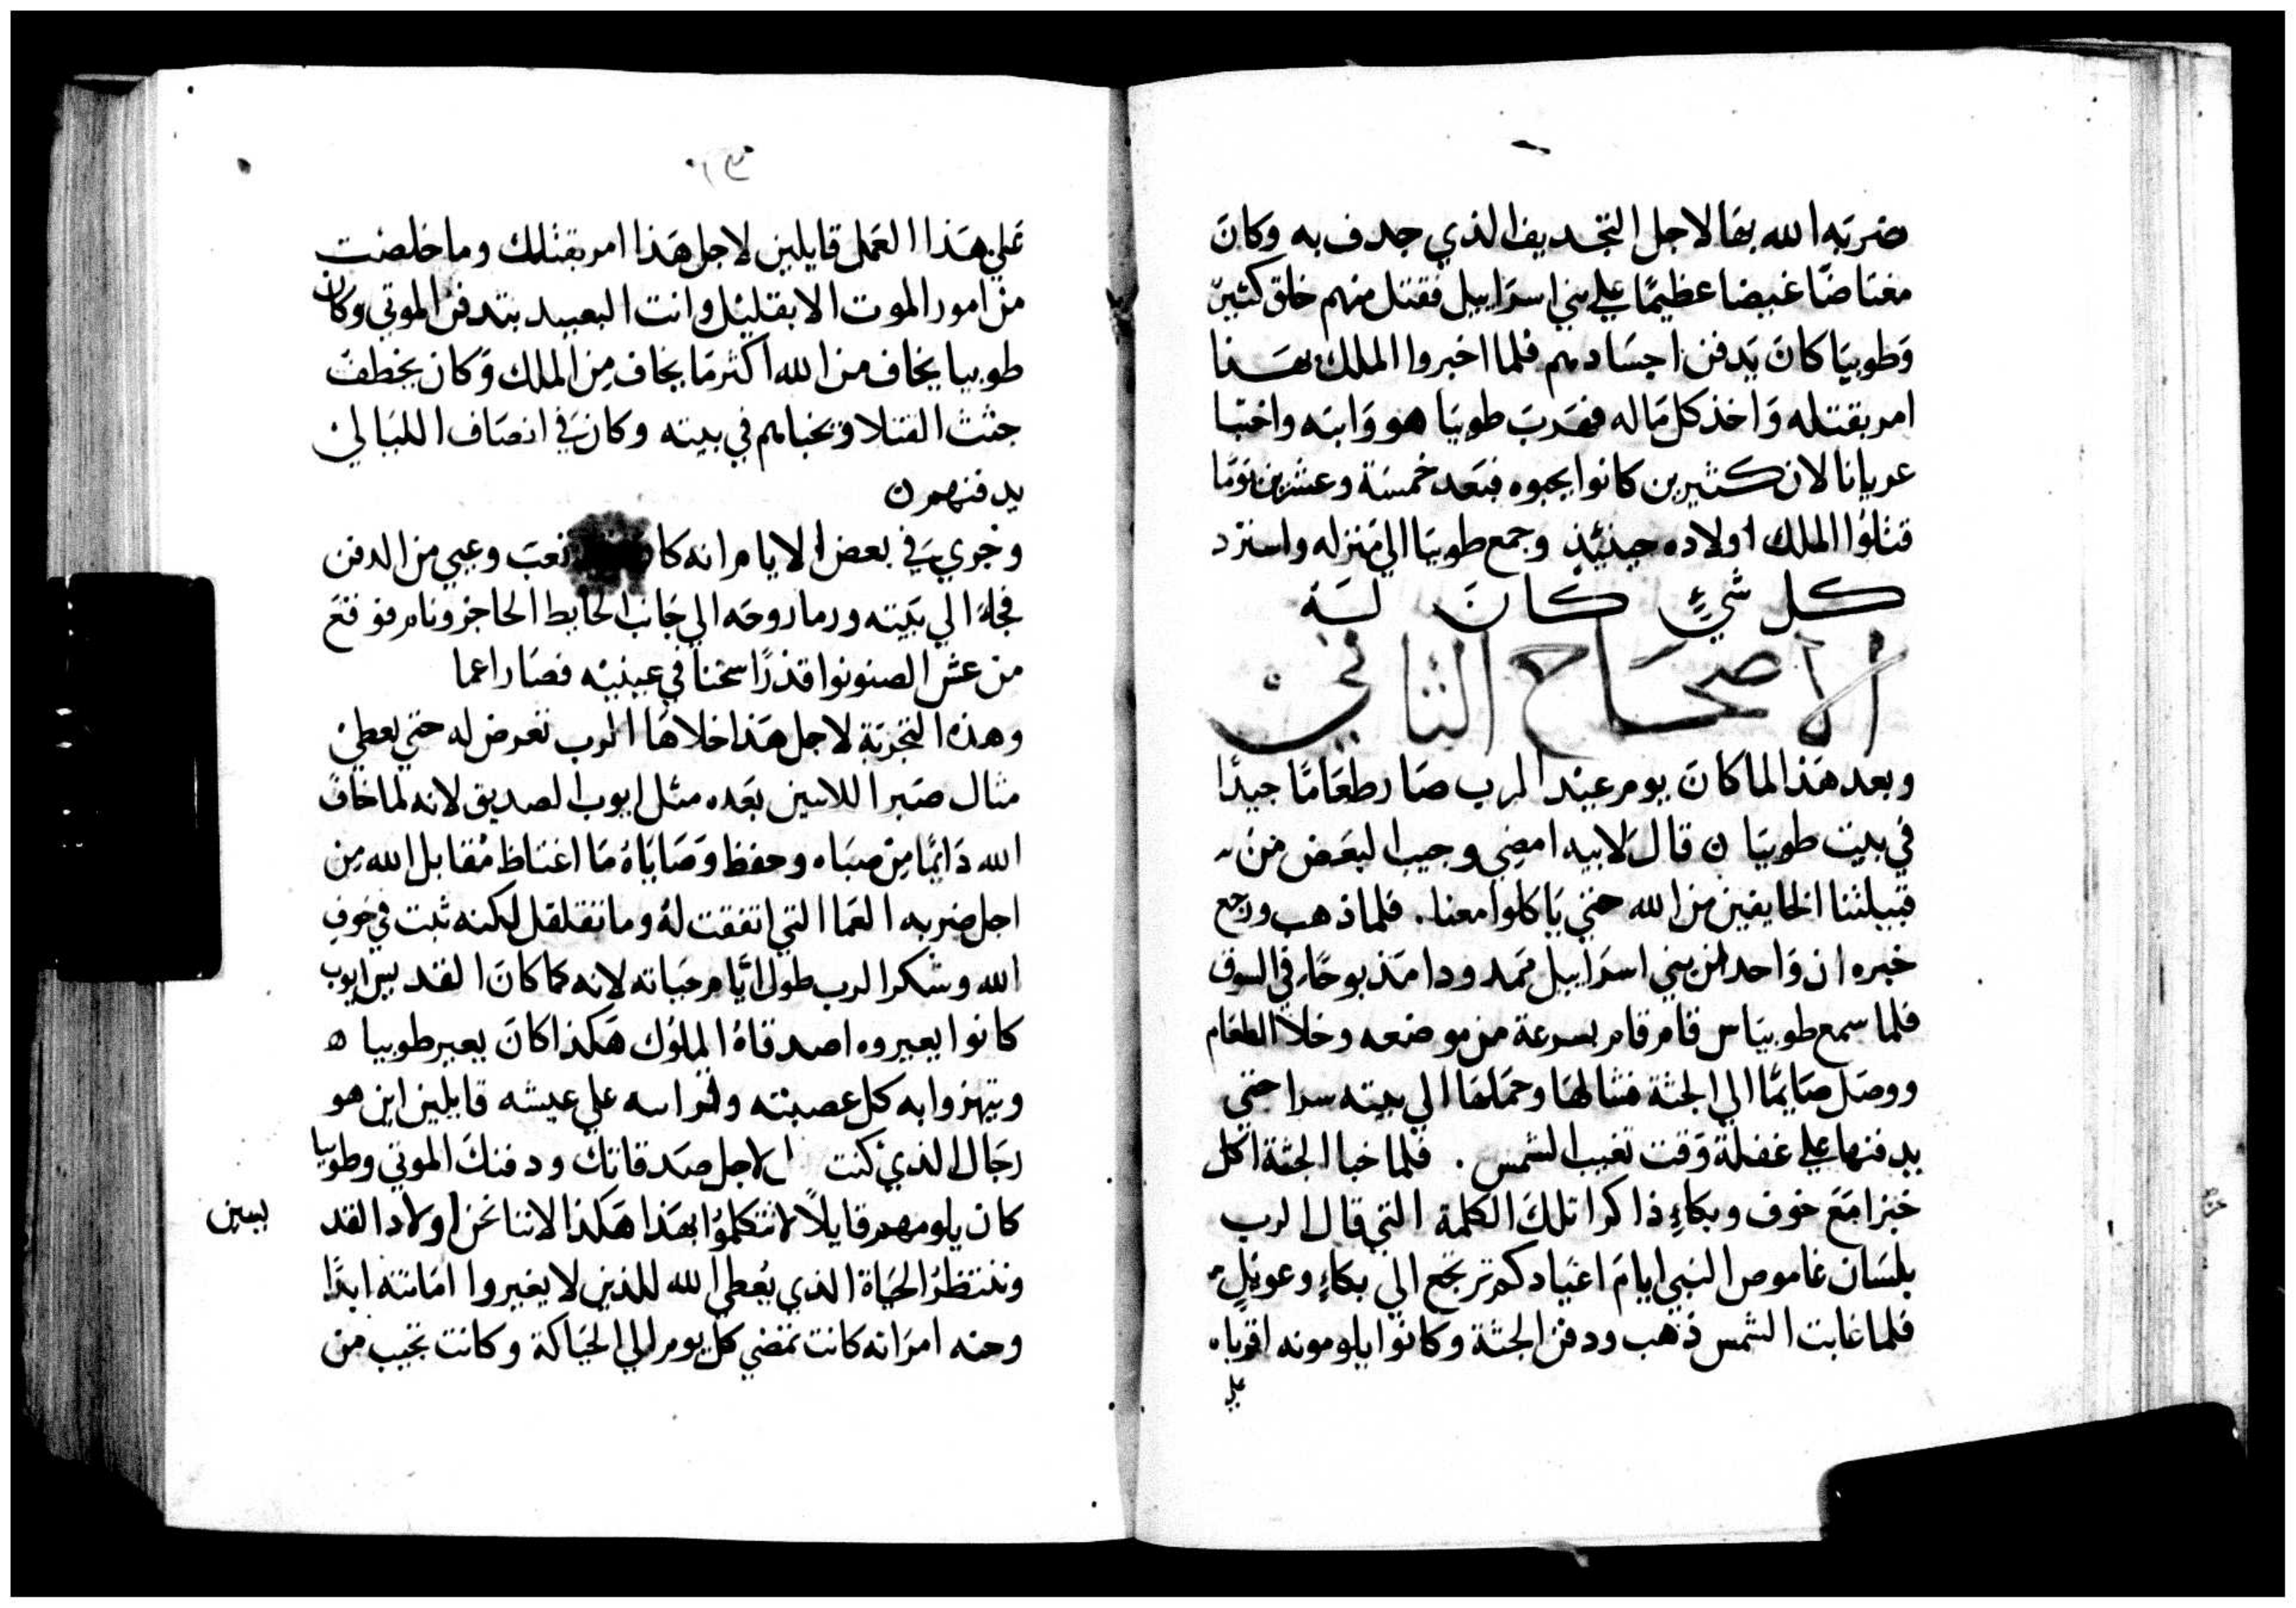 ضربه الله بها لاجل التجديف الذي جدف به وكان
مغتاضًا غيضا عظيمًا علي بني اسراييل فقتل منهم خلق كثير
وطوبيا كان يدفن اجسادهم فلما اخبروا الملك بهذا
امر بقتله واخذ كل ماله فهرب طوبيا هو وابنه واختبا
عريانا لان كثيرين كانوا يحبوه فبعد خمسة وعشرين يومًا
قتلوا الملك اولاده حينيٍذ ورجع طوبيا الي منزله واسترد
كل شيءٍ كان له
الاصحاح الثاني
وبعد هذا لما كان يوم عيد الرب صار طعامًا جيدًا
في بيت طوبيا ن قال لابيه امضي وجيب لبعض من
قبيلتنا الخايفين من الله حتي ياكلوا معنا . فلما ذهب ورجع
خبره ان واحد من بني اسراييل ممدودا مذبوحًا في السوق
فلما سمع طوبياس قام قام بسرعة من موضعه وخلا الطعام
ووصل صايمًا الي الجثة فشالها وحملها الي بيته سرا حتي
يدفنها علي غفلة وقت تغيب الشمس . فلما خبا الجثة اكل
خبزا مع خوف وبكاءٍ ذاكرا تلك الكلمة التي قال الرب
بلسان عاموص النبي ايام اعيادكم ترجع الي بكاءٍ وعويلٍ
فلما غابت الشمس ذهب ودفن الجثة وكانوا يلومونه اقرباه
علي
علي هذا العمل قايلين لاجل هذا امر بقتلك وما خلصت
من امور الموت الا بقليل وانت البعيد بتدفن الموتي وكان
طوبيا يخاف من الله اكثر مما يخاف من الملك وكان يخطف
جثث القتلا ويخباهم في بيته وكان في انصاف الليالي
يدفنهم ن
وجري في بعض الايام انه كان تعب وعيي من الدفن
فجاءَ الي بيته ورما روحه الي جانب الحايط الحاجز ونام فوقع
من عش الصنونوا قذرًا سخنا في عينيه فصار اعما
وهذه التجربة لاجل هذا خلاها الرب تعرض له حتي يعطي
مثال صبرا للاتيين بعده مثل ايوب الصديق لانه لما خاف
الله دايمًا من صباه وحفظ وصاياهُ ما اغتاظ مُقابل الله من
اجل ضربه العما التي اتفقت لهُ وما تقلقل لكنه ثبت في خوف
الله وشكر الرب طول ايام حياته لانه كما كان القديس ايوب
كانوا يعيروه اصدقاهُ الملوك هكذا كان يعير طوبيا ه
ويتهزوا به كل عصبته و علي عيشه قايلين اين هو
رجاك الذي كنت لاجل صدقاتك ودفنك الموتي وطوبيا
كان يلومهم قايلاً لا تتكلموا بهذا هكذا لاننا نحن اولاد القد
يسين
وننتظرُ الحياة الذي يُعطي الله للذين لا يغيروا امانته ابدًا
وحنه امراته كانت تمضي كل يوم الي الحياكة وكانت تجيب من